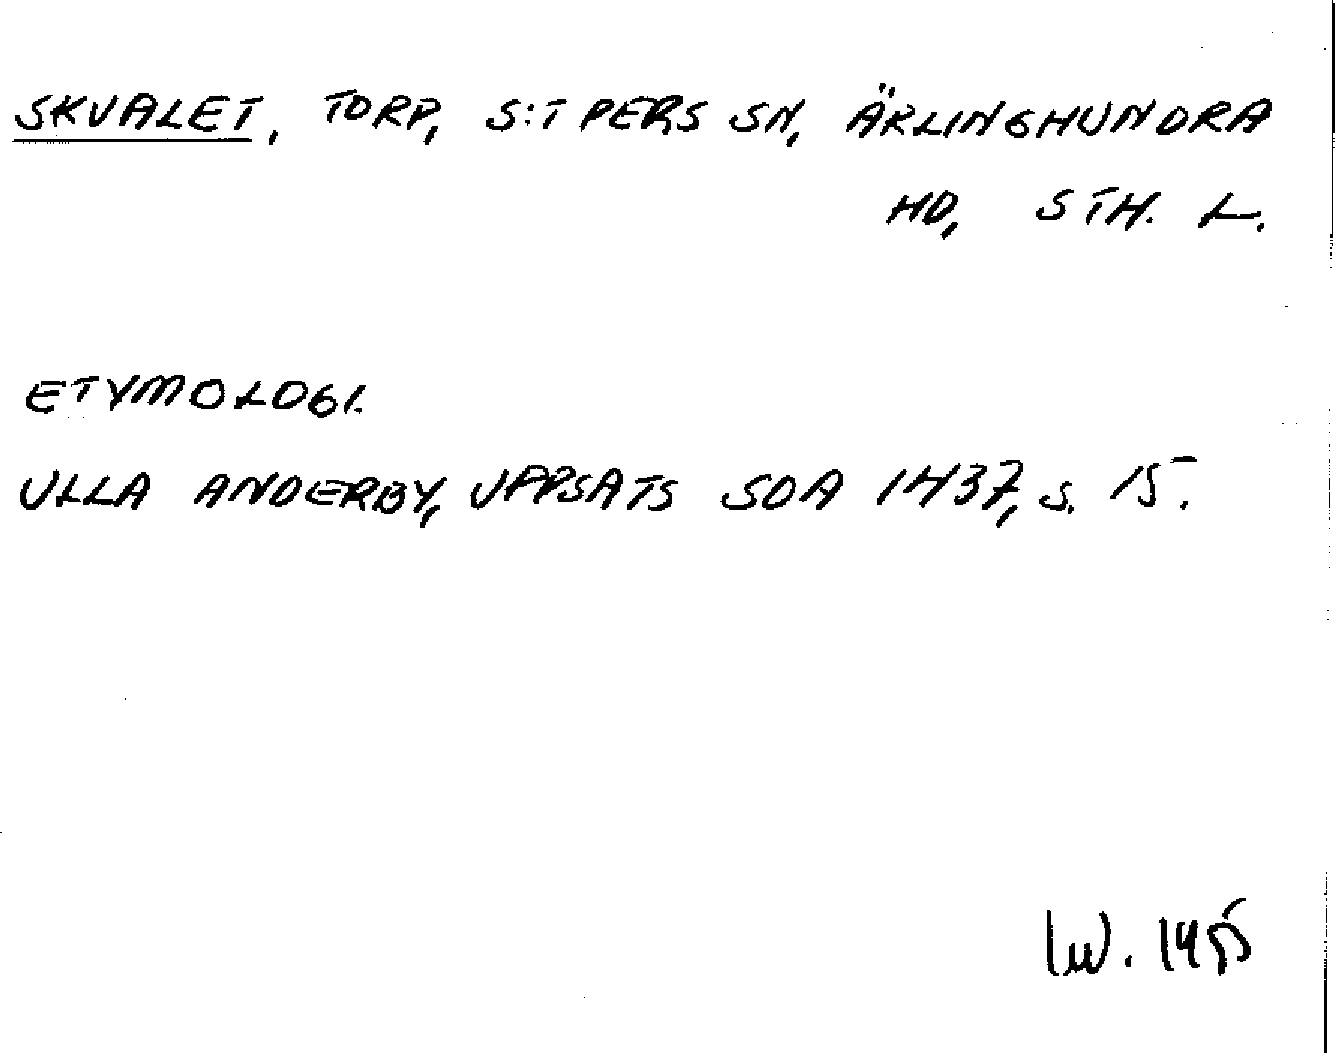 SKVALET, TORP, S:T PERS SN, ÄRLINGHUNDRA
HD, STH. L.
ETYMOLOGI.
ULLA ANDERBY, UPPSATS SOA 1437, S. 15.